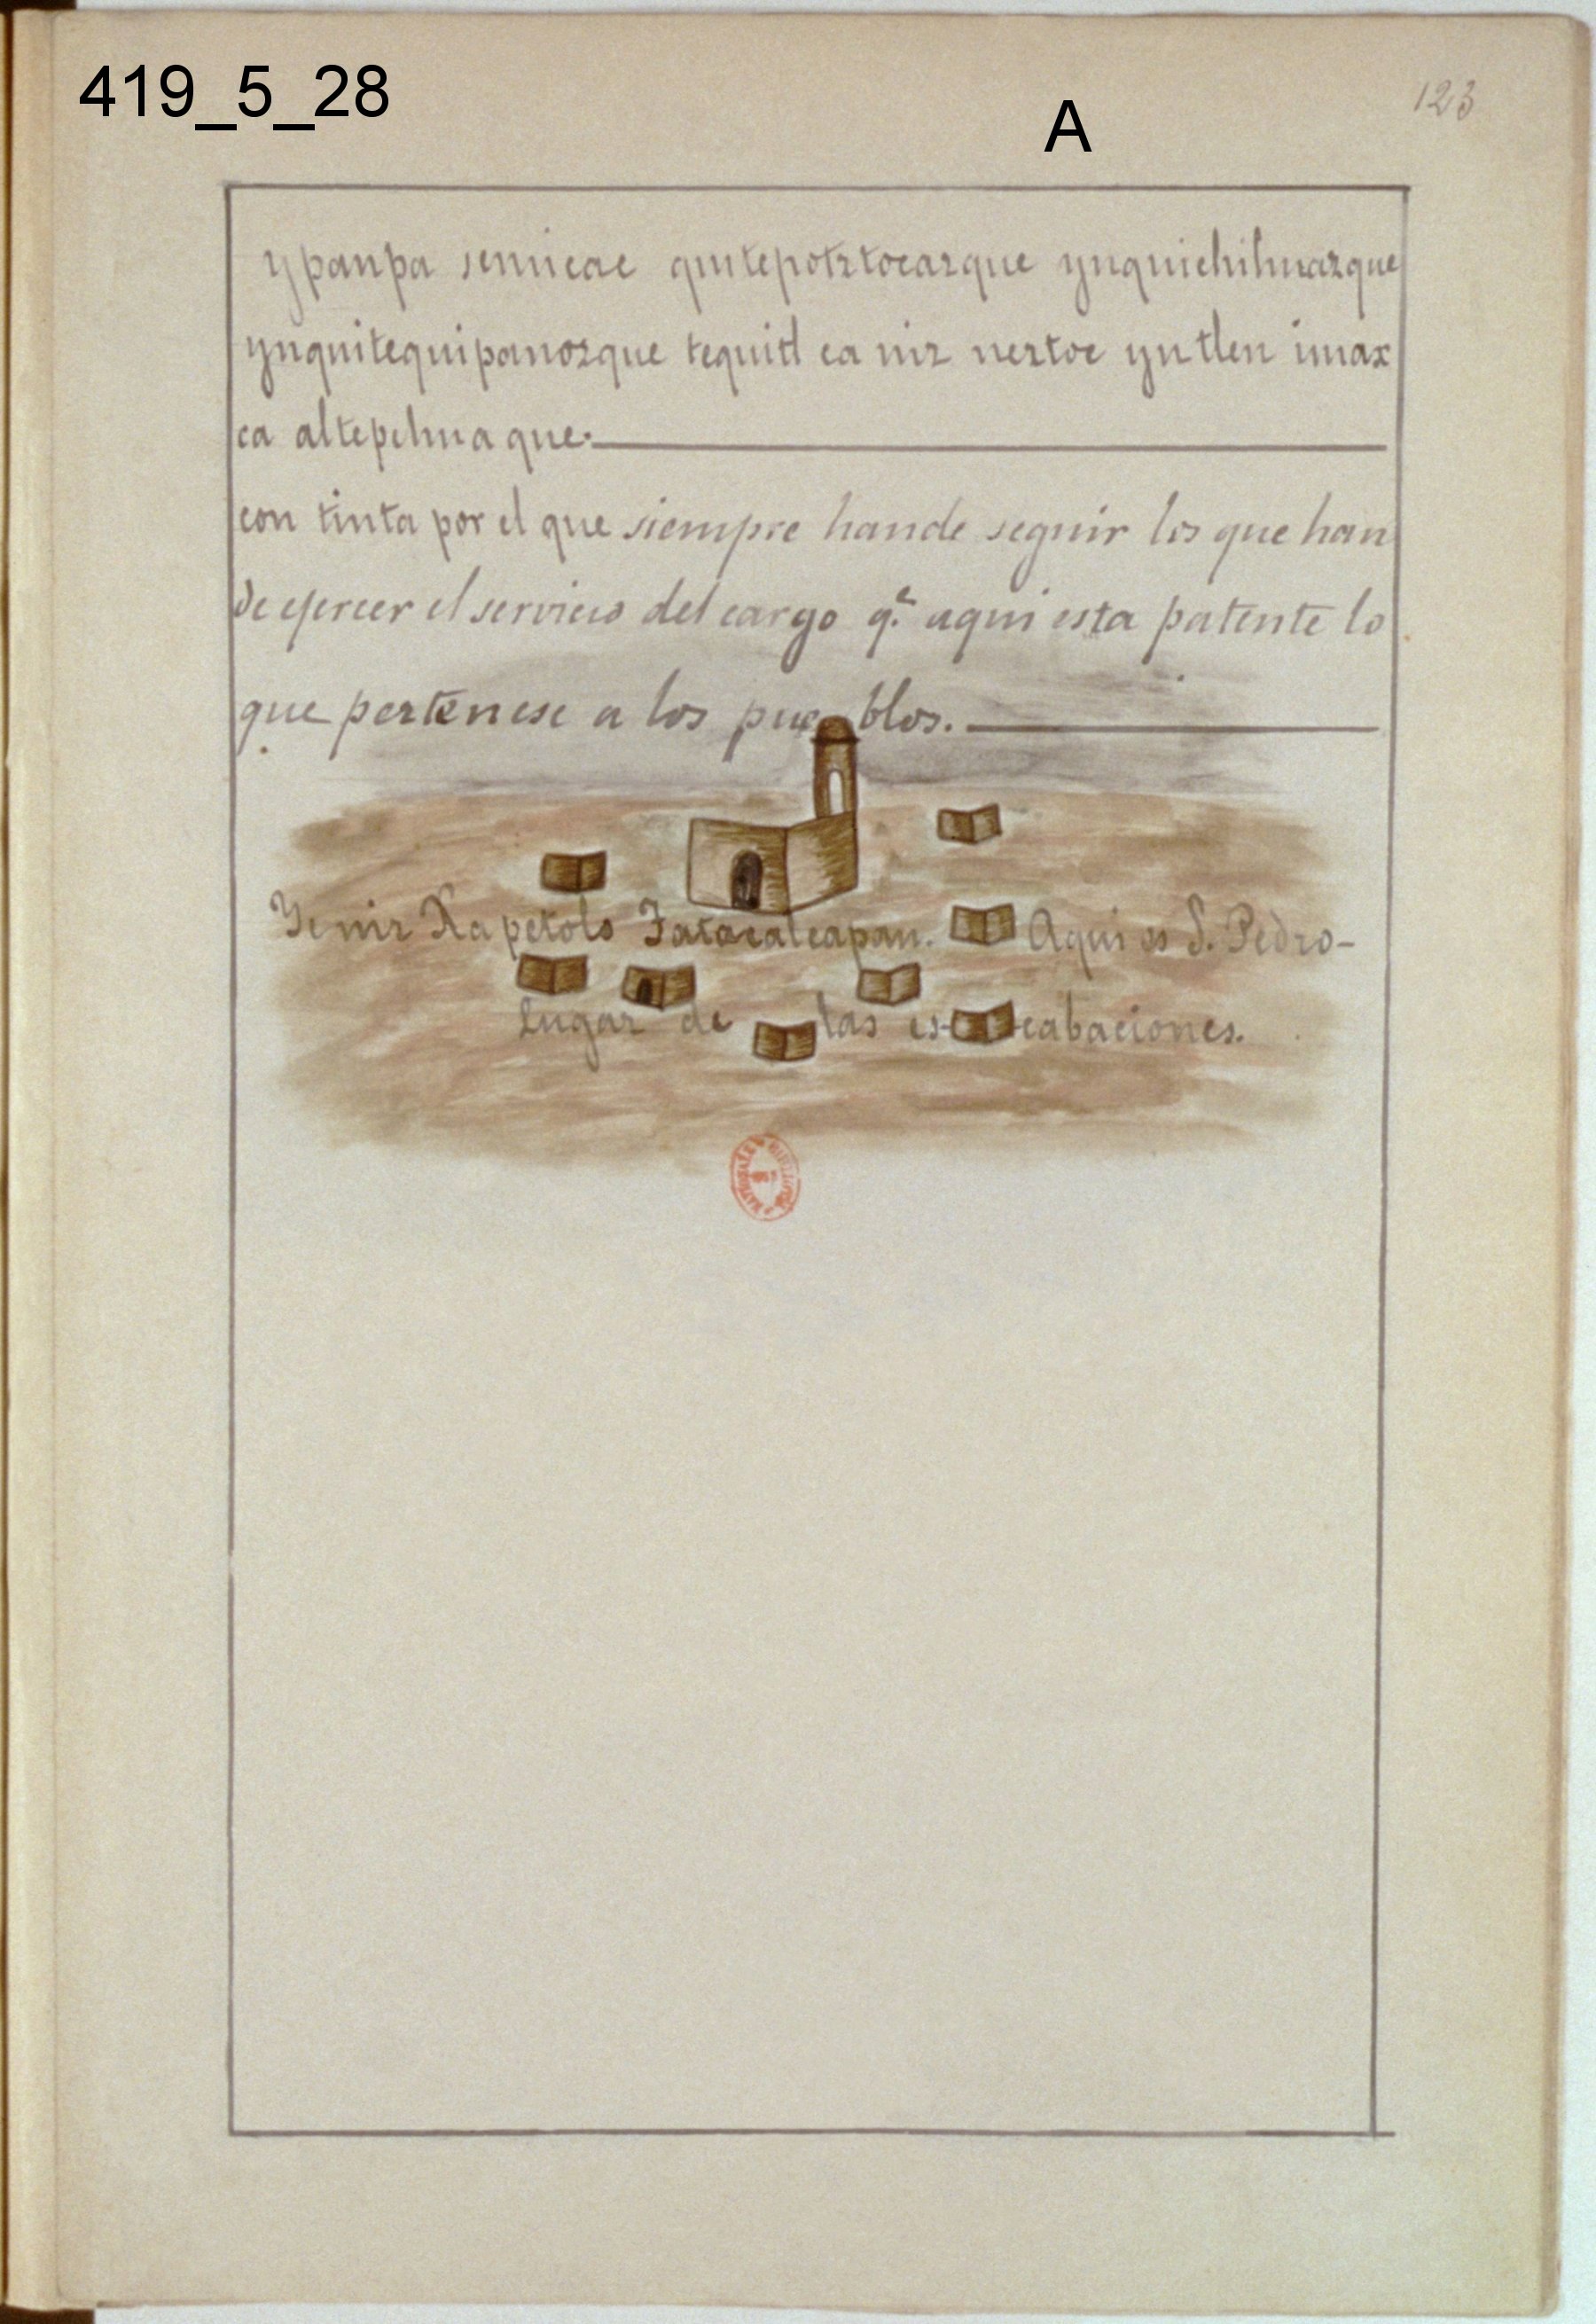 419_5_28
A
123
ypanpa semicac quitepotztocazque ynquichihuazque
ynquitequipanozque tequitl ca niz neztoc yntlen imax
ca altepehuaque.
con tinta por el que siempre hande seguir los que han
de ejercer el servicio del cargo q.e aqui esta patente lo
que pertenese a los pueblos.
Yeniz Xa petolo Tatacalcapan. Aqui es S. Pedro-
lugar de las es-cabaciones.